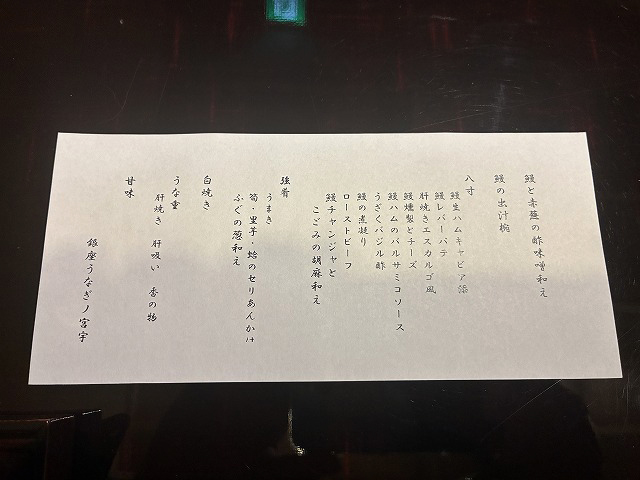 鰻と赤蕪の酢味噌和え
鰻の出汁椀
八寸
鰻生ハムキャビア添
鰻レバーパテ
肝焼きエスカルゴ風
鰻燻製とチーズ
鰻ハムのバルサミコソース
うざくバジル酢
鰻の煮凝り
ローストビーフ
鰻チャンジャと
こごみの胡麻和え
強肴
うまき
筍・里芋・蛤のせりあんかけ
ふぐの葱和え
白焼き
うな重
肝焼き 肝吸い 香の物
甘味
銀座うなぎノ宮宇